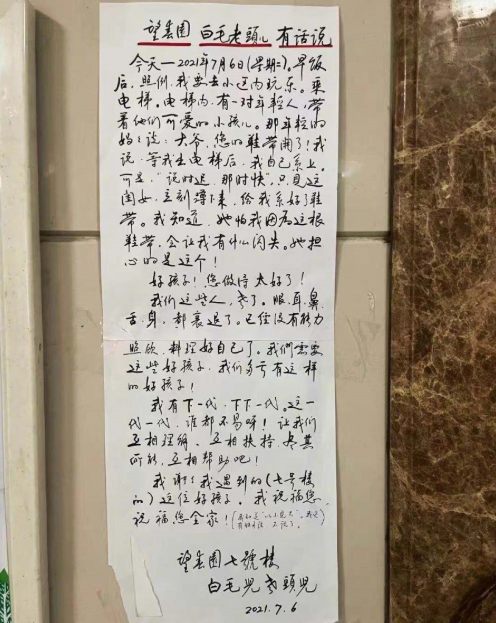 望春園 白毛老頭儿 有话说
今天—2021年7月6日(星期二)。早饭
后，照例，我要去小区内玩乐。乘
电梯。电梯内，有一对年轻人，带
着他们可爱的小孩儿。那年轻的
妈妈说：大爷，您的鞋带開了！我
说：等我出电梯后，我自己系上。
可是，“说时迟，那时快”，只見这
闺女，立刻蹲下来，给我系好了鞋
带。我知道，她怕我因为这根
鞋带，会让我有什么闪失。她担
心的是这个！
好孩子！您做得太好了！
我们这些人，老了。眼、耳、鼻、
舌、身，都衰退了。已经没有能力
照顾、料理好自己了。我們需要
这些好孩子，我们多亏有这样
的好孩子！
我有下一代，下下一代。这一
代一代，谁都不易呀！让我们
互相理解，互相扶持，尽其
所能，互相帮助吧！
我谢谢我遇到的(七号楼
的)这位好孩子。我祝福您，
祝福您全家！
望春園七號楼
白毛児老頭児
2021.7.6